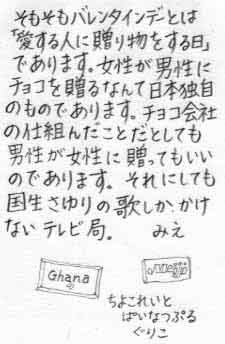 そもそもバレンタインデーとは
「愛する人に贈り物をする日」
であります。女性が男性に
チョコを贈るなんて日本独自
のものであります。チョコ会社
の仕組んだことだとしても
男性が女性に贈ってもいい
のであります。それにしても
国生さゆりの歌しかかけ
ないテレビ局。 みえ
Ghana
ちよこれいと
ぱいなつぷる
ぐりこ